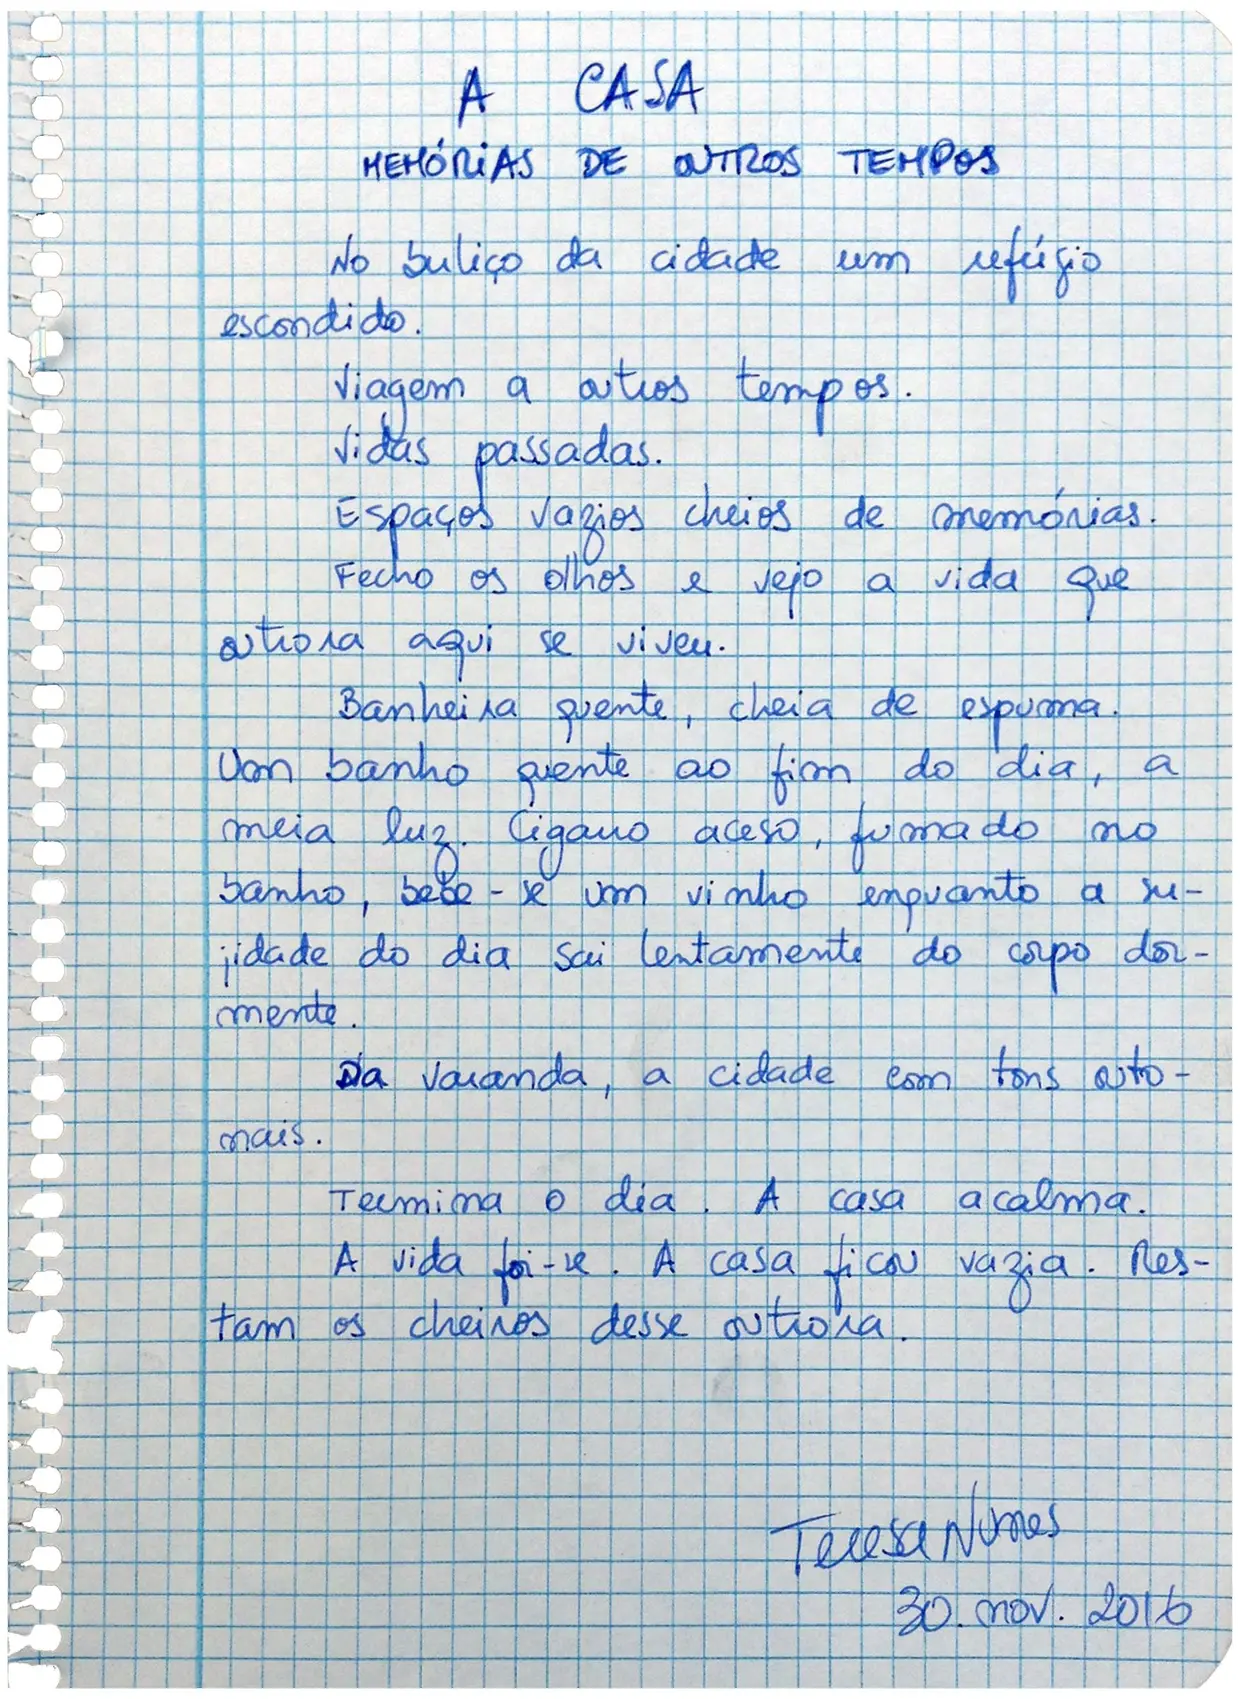 A CASA
MEMÓRIAS DE OUTROS TEMPOS
No buliço da cidade um refúgio
escondido.
Viagem a outros tempos.
Vidas passadas.
Espaços vazios cheios de memórias.
Fecho os olhos e vejo a vida que
outrora aqui se viveu.
Banheira quente, cheia de espuma.
Um banho quente ao fim do dia, a
meia luz. Cigarro aceso, fumado no
banho, bebe-se um vinho enquanto a su-
jidade do dia sai lentamente do corpo dor-
mente.
Da varanda, a cidade com tons outo-
nais.
Termina o dia. A casa acalma.
A vida foi-se. A casa ficou vazia. Res-
tam os cheiros desse outrora.
Teresa Nunes
30. nov. 2016